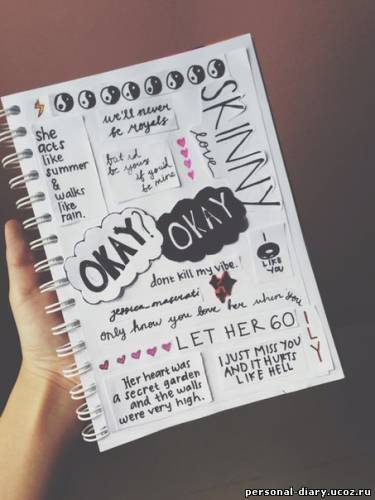 she
acts
like
summer
&
walks
like
rain.
we'll never
be Royals
but i'd
be yours
if you'd
be mine
SKINNY
love
OKAY?
OKAY
dont kill my vibe.
I
LIKE
YOU
only know you love her when you
LET HER GO
ILY
Her heart was
a secret garden
and the walls
were very high.
I JUST MISS YOU
AND IT HURTS
LIKE HELL
personal-diary.ucoz.ru